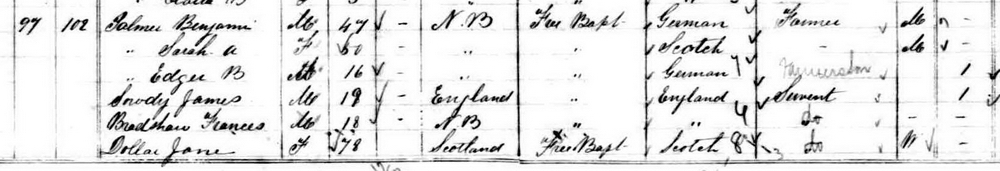 97 102 Palmer Benjamin M 47 - N.B Free Bapt German Farmer M -
" Sarah A F 50 - " " Scotch - M -
" Edger B M 16 - " " German 1
Snody James M 19 - England " England Servent 1
Bradshaw Frances M 18 - N.B " " 4 do - -
Dollar Jane F 78 Scotland Free Bapt Scotch 8 do W -